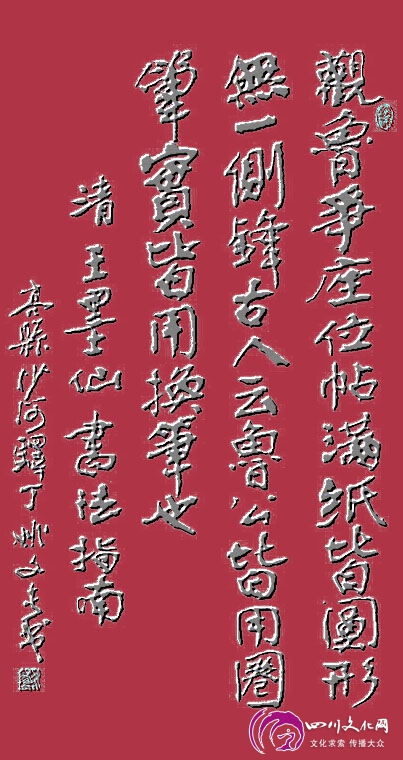 觀魯爭座位帖滿紙皆圓形
無一側鋒古人云魯公皆用圈
筆實皆用換筆也
清 王墨仙 書法指南
沙河驛丁
四川文化网
文化求索 传播大众